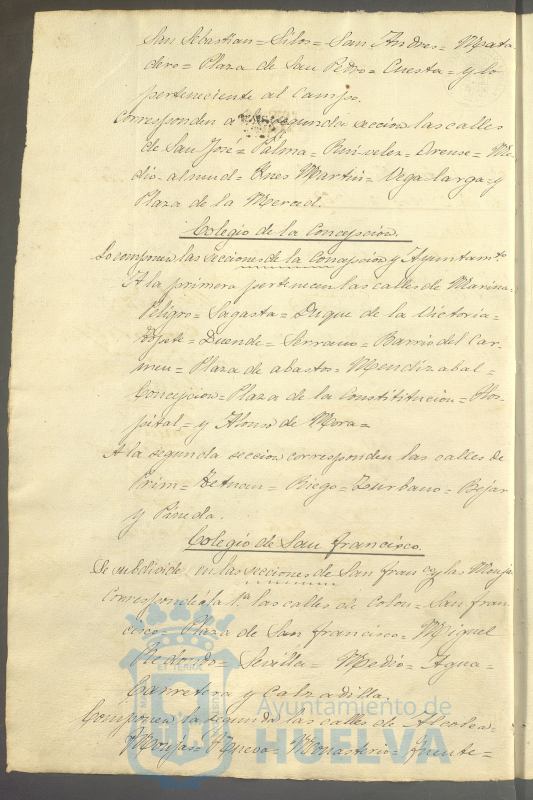 San Sebastian = Silos = San Andres = Mata
dero = Plaza de San Pedro = Cuesta = y lo
perteneciente al Campo.
Corresponden a la segunda seccion las calles
de San José = Palma = Ruiz velez = Orense = Me
dio almud = Ynes Martin = Vega larga = y
Plaza de la Merced.
Colegio de la Concepcion.
Lo componen las secciones de la Concepcion y Ayuntamto.
A la primera pertenecen las calles de Marina =
Peligro = Sagasta = Duque de la Victoria =
Duende = Serrano = Barrio del Car-
men = Plaza de abastos = Mendizabal =
Concepcion = Plaza de la Constititucion = Hos-
pital = y Alonso de Mora =
A la segunda seccion corresponden las calles de
Prim = Tetuan = Riego = Zurbano = Bejar
y Pineda.
Colegio de San Francisco.
Se subdivide en las secciones de San Franco y las Monjas
Corresponde á la 1ª las calles de Colon = San Fran
cisco = Plaza de San Francisco = Miguel
Redondo = Sevilla = Medio = Agua =
Carretera y Calzadilla.
Componen la segunda las calles de Alcolea =
Monjas = Nueva = Monasterio = Fuente =
Ayuntamiento de
HUELVA